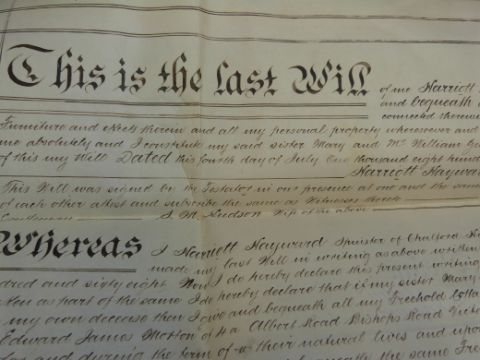 This is the last Will
of me Harriott
and bequeath
connected
Furniture and effects therein and all my personal property wheresoever and
me absolutely and I constitute my said sister Mary and Mr William
of this my Will Dated this fourth day of July One thousand eight hund
Harriott Haywar
This Will was signed by the Testator in our presence at one and the same
of each other attest and subscribe the same as Witnesses thereto
S. M. Hudson Wife of the above
Whereas I Harriott Hayward Spinster of Chalford
made my last Will in writing as above written
dred and sixty eight Now I do hereby declare this present writing
Now as part of the same I do hereby declare that if my sister Mary
my own decease then I give and bequeath all my Freehold Cotta
Edward James Morton of 4a Albert Road Bishops Road Victo
for and during the term of their natural lives and upon